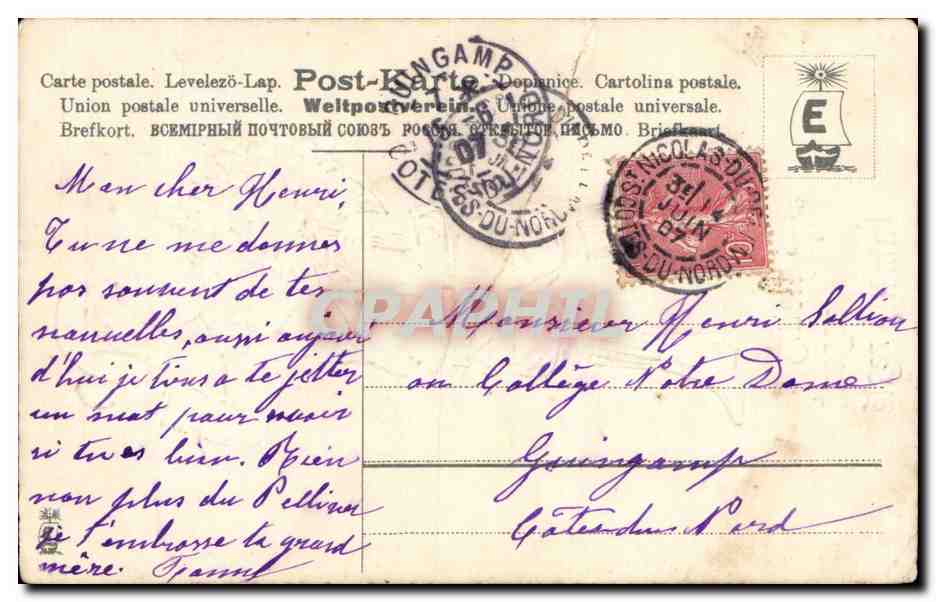 Carte postale. Levelezö-Lap. Post-Karte. Dopisnice. Cartolina postale.
Union postale universelle. Weltpostverein. Unione postale universale.
Brefkort. ВСЕМІРНЫЙ ПОЧТОВЫЙ СОЮЗЪ РОССІЯ. ОТКРЫТОЕ ПИСЬМО. Briefkaart.
E
GUINGAMP
07
CÔTES-DU-NORD
ST NICOLAS-DU-
3E 14
JUIN
07
CÔTES-DU-NORD
10
Mon cher Henri,
Tu ne me donnes
pas souvent de tes
nouvelles, aussi aujour
d'hui je tiens a te jetter
un mot pour savoir
si tu es bien. Rien
non plus du
je t'embrasse ta grand
mère.
CPAPHIL
Monsieur Henri
au Collège Notre Dame
Guingamp
Côtes du Nord